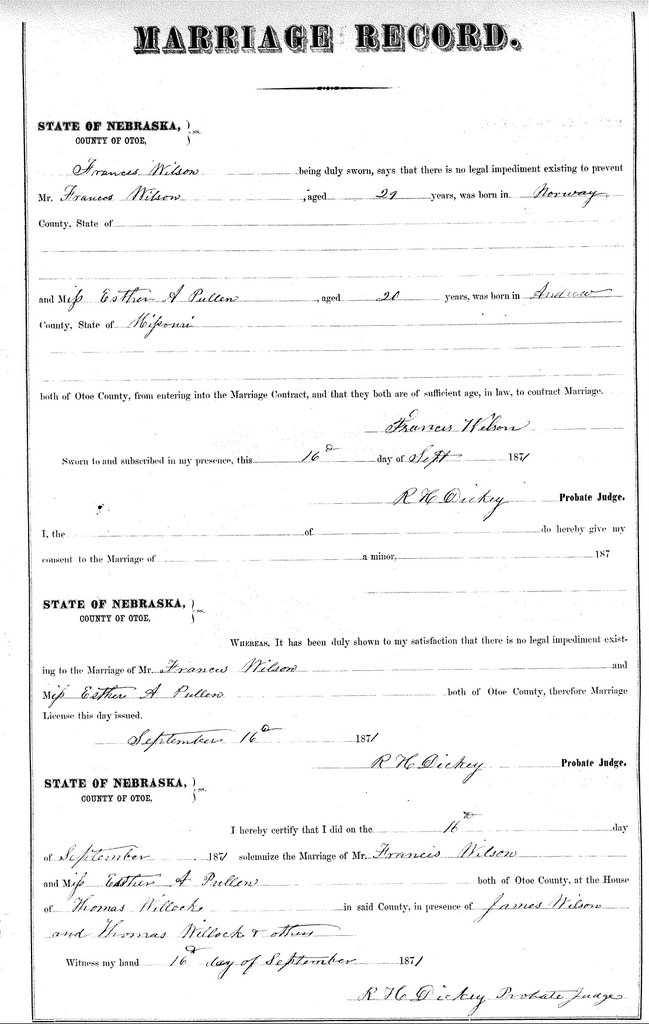 MARRIAGE RECORD.
STATE OF NEBRASKA, } ss.
COUNTY OF OTOE,
Francis Wilson being duly sworn, says that there is no legal impediment existing to prevent
Mr. Francis Wilson, aged 29 years, was born in Norway
County, State of
and Miss Esther A Pullen, aged 20 years, was born in Andrew
County, State of Missouri
both of Otoe County, from entering into the Marriage Contract, and that they both are of sufficient age, in law, to contract Marriage.
Francis Wilson
Sworn to and subscribed in my presence, this 16th day of Sept 1871
R H Dickey Probate Judge.
I, the of do hereby give my
consent to the Marriage of a minor, 187
STATE OF NEBRASKA, } ss.
COUNTY OF OTOE,
WHEREAS, It has been duly shown to my satisfaction that there is no legal impediment exist-
ing to the Marriage of Mr. Francis Wilson and
Miss Esther A Pullen both of Otoe County, therefore Marriage
License this day issued.
September 16th 1871
R H Dickey Probate Judge.
STATE OF NEBRASKA, } ss.
COUNTY OF OTOE,
I hereby certify that I did on the 16th day
of September 1871 solemnize the Marriage of Mr. Francis Wilson
and Miss Esther A Pullen both of Otoe County, at the House
of Thomas Willock in said County, in presence of James Wilson
and Thomas Willock & others
Witness my hand 16th day of September 1871
R H Dickey Probate Judge